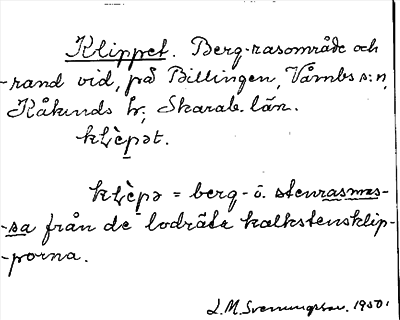 Klippet. Berg-rasområde och
-rand vid, på Billingen, Våmbs s:n,
Kåkinds hr, Skarab. län.
kḷèpət.
kḷèpə = berg- o. stenrasmas-
-sa från de lodräta kalkstensklip-
-porna.
L.M. Svenungsson. 1950.